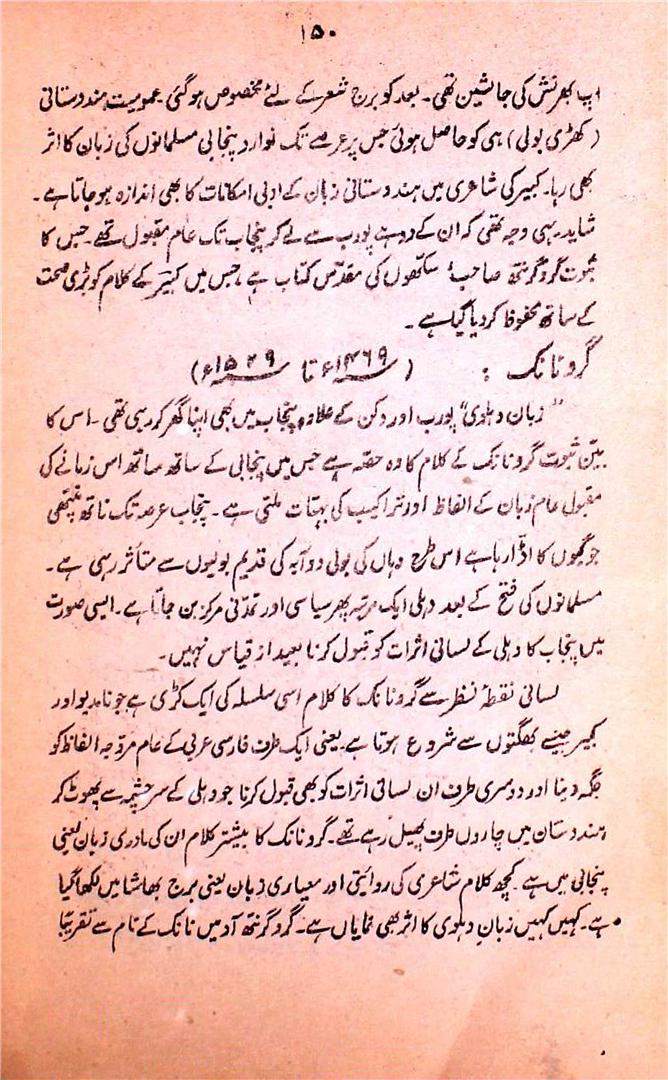 ۱۵۰
اپ بھرنش کی جانشین تھی۔ بعد کو برج شعر کے لئے مخصوص ہوگئی۔ عمومیت ہندوستانی
(کھڑی بولی) ہی کو حاصل ہوئی جس پر عرصے تک نووارد پنجابی مسلمانوں کی زبان کا اثر
بھی رہا۔ کبیر کی شاعری میں ہندوستانی زبان کے ادبی امکانات کا بھی اندازہ ہوجاتا ہے۔
شاید یہی وجہ تھی کہ ان کے دوہے پورب سے لے کر پنجاب تک عام مقبول تھے۔ جس کا
ثبوت گرو گرنتھ صاحب، سکھوں کی مقدس کتاب ہے، جس میں کبیر کے کلام کو بڑی صحت
کے ساتھ محفوظ کر دیا گیا ہے۔
گرو نانک : (۱۴۶۹ء تا ۱۵۳۹ء)
”زبان دہلوی“ پورب اور دکن کے علاوہ پنجاب میں بھی اپنا گھر کر رہی تھی۔ اس کا
بین ثبوت گرو نانک کے کلام کا وہ حصہ ہے جس میں پنجابی کے ساتھ ساتھ اس زمانے کی
مقبول عام زبان کے الفاظ اور تراکیب کی بہتات ملتی ہے۔ پنجاب عرصہ تک ناتھ پنتھی
جوگیوں کا اڈّا رہا ہے اس طرح وہاں کی بولی دوآبہ کی قدیم بولیوں سے متأثر رہی ہے۔
مسلمانوں کی فتح کے بعد دہلی ایک مرتبہ پھر سیاسی اور تمدنی مرکز بن جاتا ہے۔ ایسی صورت
میں پنجاب کا دہلی کے لسانی اثرات کو قبول کرنا بعید از قیاس نہیں۔
لسانی نقطۂ نظر سے گرو نانک کا کلام اسی سلسلہ کی ایک کڑی ہے جو نامدیو اور
کبیر جیسے بھگتوں سے شروع ہوتا ہے۔ یعنی ایک طرف فارسی عربی کے عام مروّجہ الفاظ کو
جگہ دینا اور دوسری طرف ان لسانی اثرات کو بھی قبول کرنا جو دہلی کے سرچشمہ سے پھوٹ کر
ہندوستان میں چاروں طرف پھیل رہے تھے۔ گرو نانک کا بیشتر کلام ان کی مادری زبان یعنی
پنجابی میں ہے۔ کچھ کلام شاعری کی روایتی اور معیاری زبان یعنی برج بھاشا میں لکھا گیا
ہے۔ کہیں کہیں زبانِ دہلوی کا اثر بھی نمایاں ہے۔ گرو گرنتھ آد میں نانک کے نام سے تقریبًا